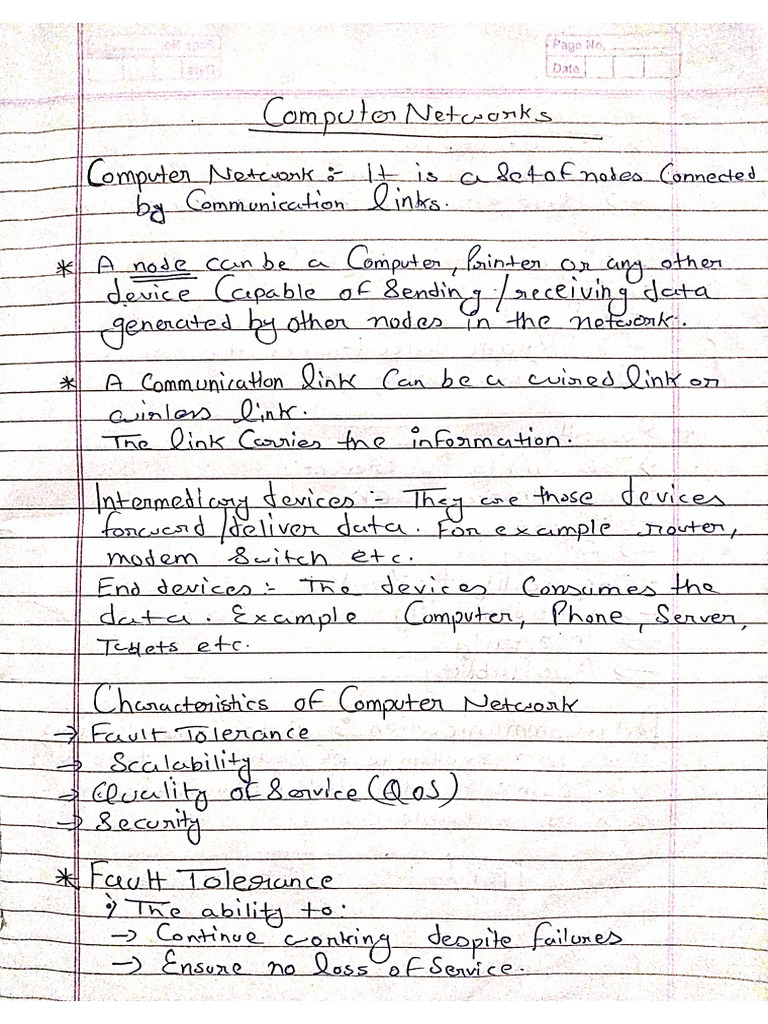 Page No.
Date
Computer Networks
Computer Network :- It is a set of nodes connected
by Communication links.
* A node can be a Computer, Printer or any other
device Capable of Sending / receiving data
generated by other nodes in the network.
* A Communication link Can be a wired link or
wirless link.
The link Carries the information.
Intermediary devices :- They are those devices
forward / deliver data. For example router,
modem Switch etc.
End devices :- The devices Consumes the
data. Example Computer, Phone, Server,
Tablets etc.
Characteristics of Computer Network
→ Fault Tolerance
→ Scalability
→ Quality of Service (QoS)
→ Security
* Fault Tolerance
i) The ability to:
→ Continue working despite failures
→ Ensure no loss of Service.